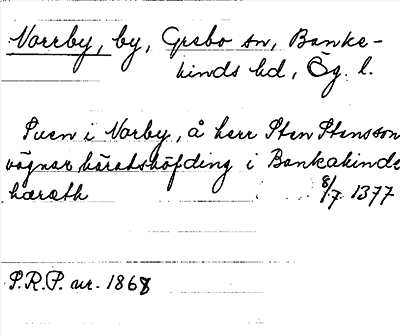 Norrby, by, Grebo sn, Banke-
kinds hd, Ög. l.
Sven i Norby, å herr Sten Stensson
vägnar häradshöfding i Bankakinds
hæræth 8/7 1377
S.R.P. nr. 1868